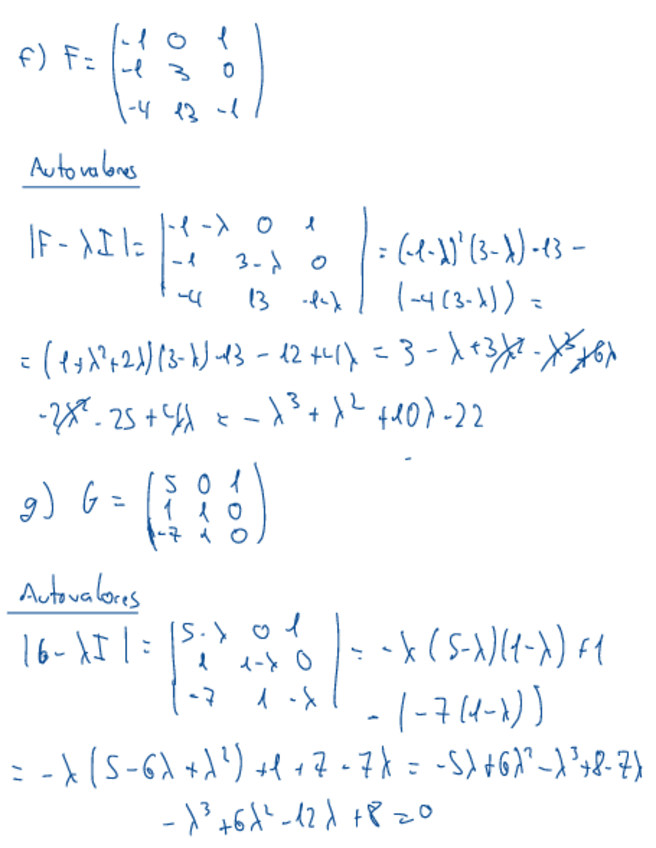 f) F = (-1 0 1
-1 3 0
-4 13 -1)
Autovalores
|F - λI| = |-1-λ 0 1
-1 3-λ 0
-4 13 -1-λ| = (-1-λ)²(3-λ) - 13 -
(-4(3-λ)) =
= (1+λ²+2λ)(3-λ) - 13 - 12 + 4λ = 3 - λ + 3λ² - λ³ + 6λ
- 2λ² - 25 + 4λ = - λ³ + λ² + 10λ - 22
g) G = (5 0 1
1 1 0
-7 1 0)
Autovalores
|G - λI| = |5-λ 0 1
1 1-λ 0
-7 1 -λ| = -λ(5-λ)(1-λ) + 1
- (-7(1-λ))
= -λ(5-6λ+λ²) + 1 + 7 - 7λ = -5λ + 6λ² - λ³ + 8 - 7λ
- λ³ + 6λ² - 12λ + 8 = 0